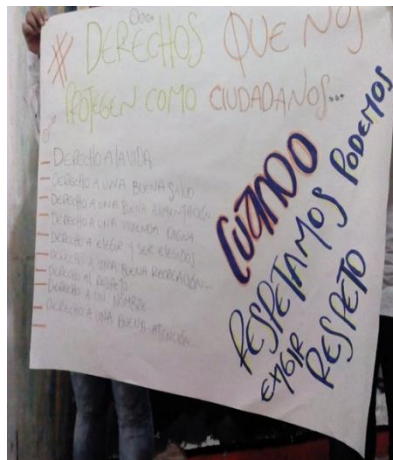 # DERECHOS QUE NOS
PROTEGEN COMO CIUDADANOS...
- DERECHO A LA VIDA
- DERECHO A UNA BUENA SALUD
- DERECHO A UNA BUENA ALIMENTACIÓN
- DERECHO A UNA VIVIENDA DIGNA
- DERECHO A ELEGIR Y SER ELEGIDOS
- DERECHO A UNA BUENA RECREACIÓN...
- DERECHO AL RESPETO
- DERECHO A UN NOMBRE
- DERECHO A UNA BUENA ATENCIÓN...
CUANDO
RESPETAMOS PODEMOS
EXIGIR
RESPETO